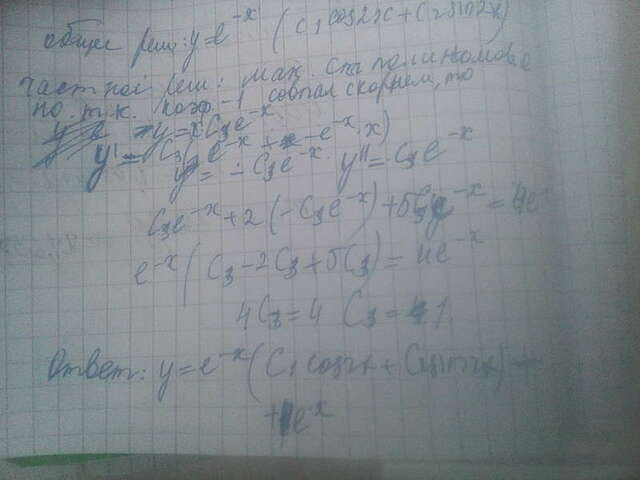 общее реш: y=e^-x (C₁cos2x+C₂sin2x)
частное реш: мак. ста полиномов е
но т.к. коэф -1 совпал скорнем, то
y=xC₃e^-x
y' = C₃(e^-x + -e^-x·x)
y' = -C₃e^-x y''=C₃e^-x
C₃e^-x+2(-C₃e^-x)+5C₃e^-x=4e
e^-x(C₃-2C₃+5C₃)=4e^-x
4C₃=4 C₃=1
Ответ: y=e^-x(C₁cos2x+C₂sin2x)+
+e^-x